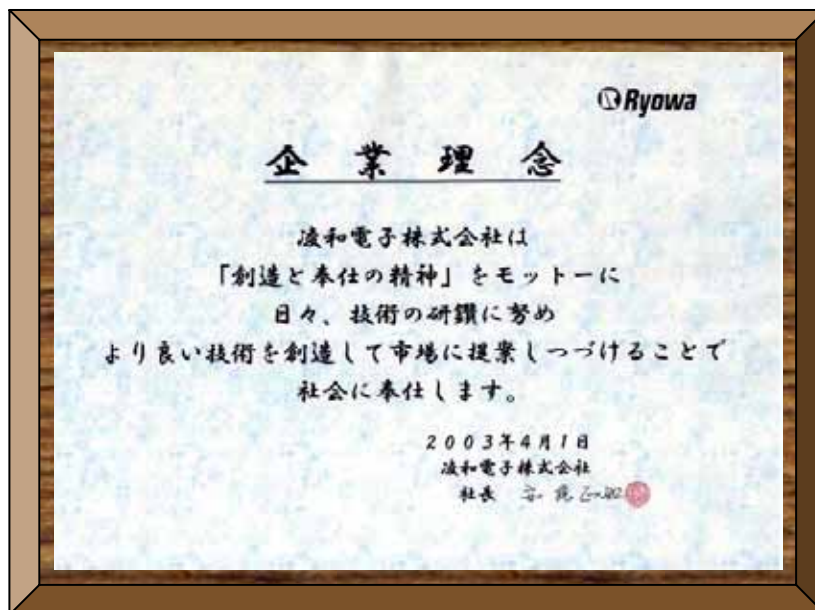 Ryowa
企業理念
凌和電子株式会社は
「創造と奉仕の精神」をモットーに
日々、技術の研鑽に努め
より良い技術を創造して市場に提案しつづけることで
社会に奉仕します。
2003年4月1日
凌和電子株式会社
社長